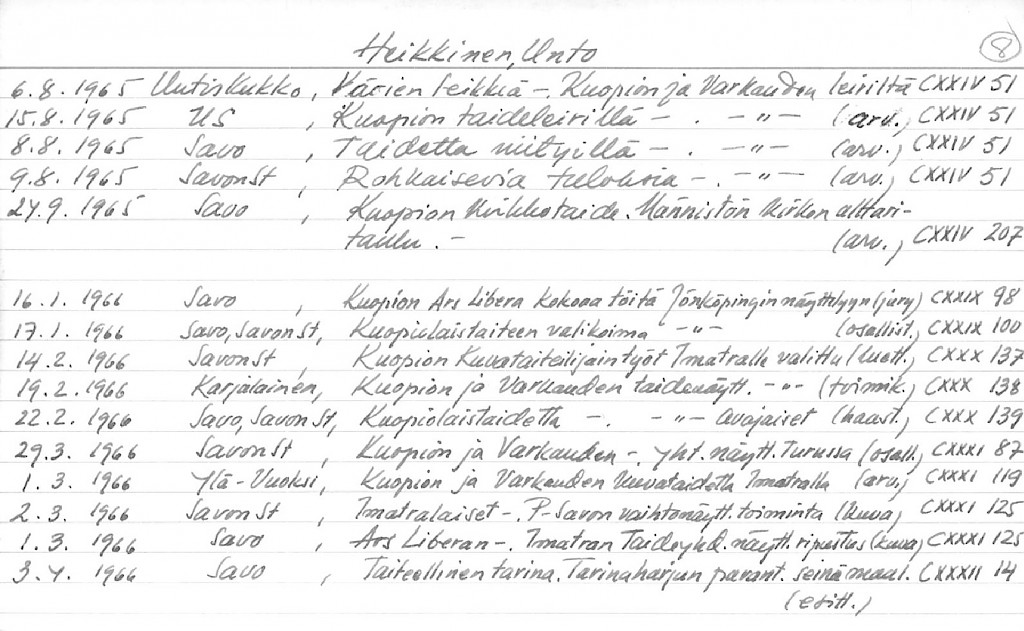 Heikkinen, Unto 8
6.8. 1965 Uutiskukko, Värien leikkiä -. Kuopion ja Varkauden leiriltä CXXIV 51
15.8. 1965 US , Kuopion taideleirillä - . - " - (arv.) CXXIV 51
8.8. 1965 Savo , Taidetta niityillä - . - " - (arv.) CXXIV 51
9.8. 1965 SavonSt , Rohkaisevia tuloksia - . - " - (arv.) CXXIV 51
24.9. 1965 Savo , Kuopion kirkkotaide. Männistön kirkon alttari-
taulu . - (arv.) CXXIV 207
16.1. 1966 Savo , Kuopion Ars Libera kokoaa töitä Jönköpingin näyttelyyn (jury) CXXIX 98
17.1. 1966 Savo, SavonSt, Kuopiolaistaiteen valikoima - " - (osallist.) CXXIX 100
14.2. 1966 SavonSt , Kuopion Kuvataiteilijain työt Imatralle valittu (luett.) CXXX 137
19.2. 1966 Karjalainen, Kuopion ja Varkauden taidenäytt. - " - (toimik.) CXXX 138
22.2. 1966 Savo, SavonSt, Kuopiolaistaidetta - . - " - avajaiset (haast.) CXXX 139
29.3. 1966 SavonSt , Kuopion ja Varkauden -. yht. näytt. Turussa (osall.) CXXXI 87
1.3. 1966 Ylä-Vuoksi, Kuopion ja Varkauden kuvataidetta Imatralla (arv.) CXXXI 119
2.3. 1966 SavonSt , Imatralaiset -. P-Savon vaihtonäytt. toiminta (kuva) CXXXI 125
1.3. 1966 Savo , Ars Liberan -. Imatran Taideyhd. näytt. ripustus (kuva) CXXXI 125
3.4. 1966 Savo , Taiteellinen tarina. Tarinaharjun parant. seinämaal. CXXXII 14
(esitt.)